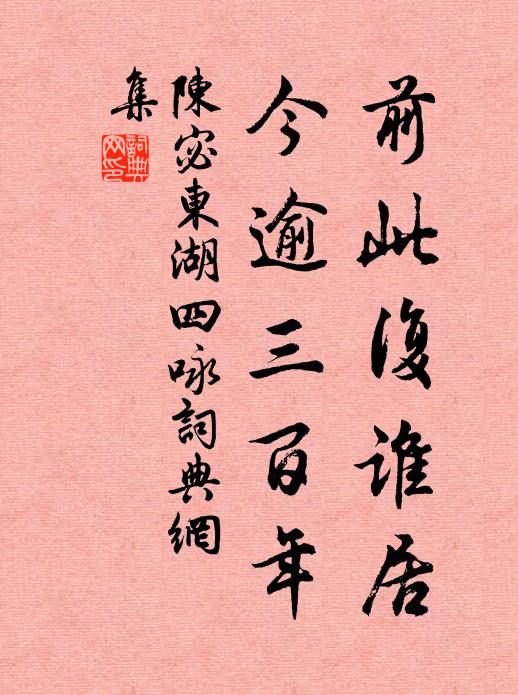 前此復誰居
今逾三百年
陳宓東湖四咏詞典網
集
詞典網印